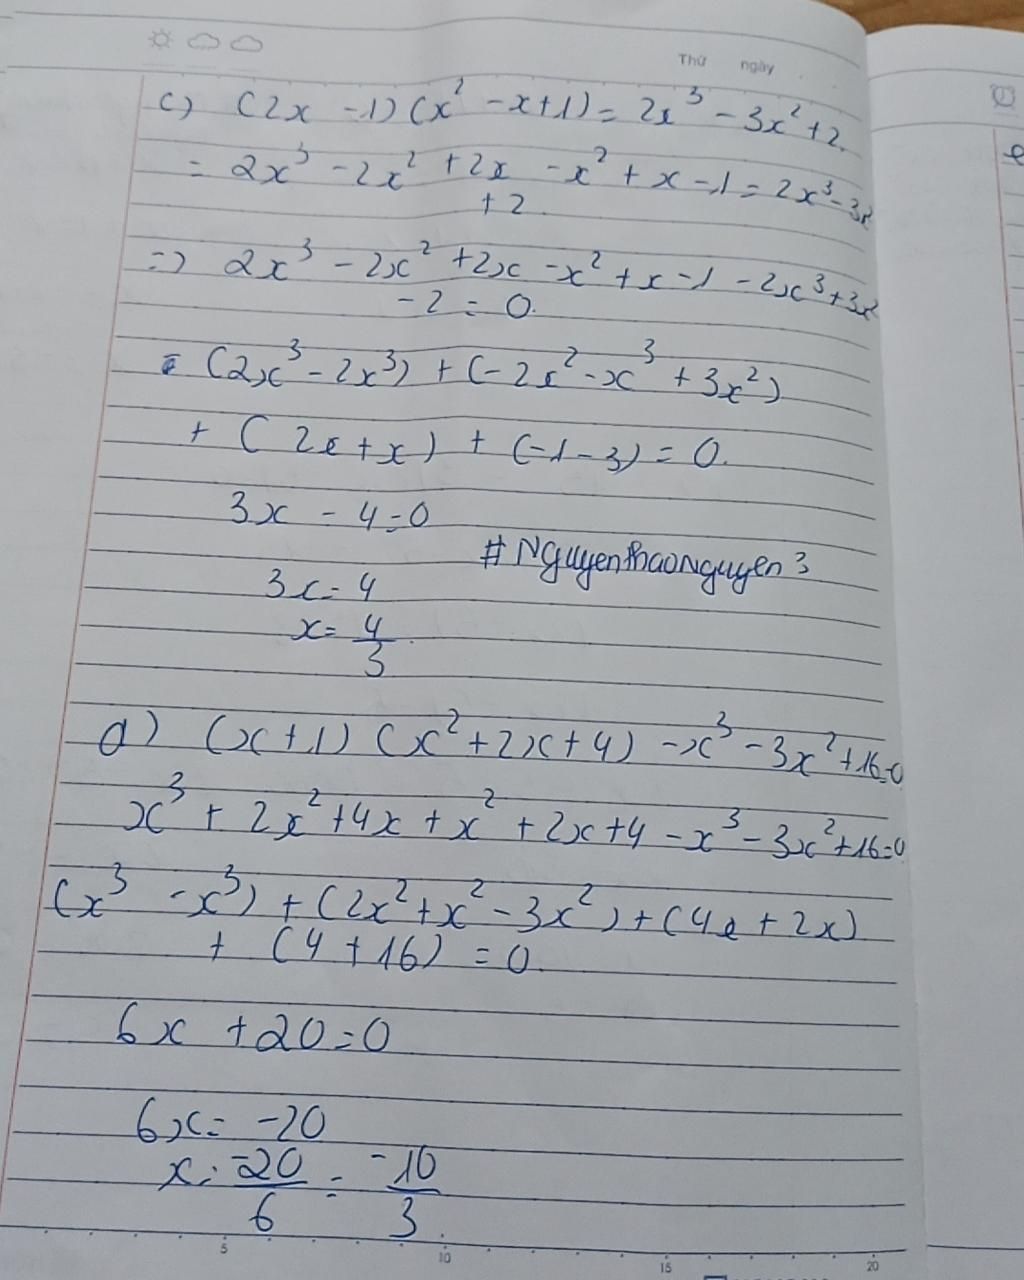 Thứ ngày
c) (2x - 1) (x² - x + 1) = 2x³ - 3x² + 2.
= 2x³ - 2x² + 2x - x² + x - 1 = 2x³ - 3x²
+ 2
=> 2x³ - 2x² + 2x - x² + x - 1 - 2x³ + 3x²
- 2 = 0.
= (2x³ - 2x³) + (-2x² - x³ + 3x²)
+ (2x + x) + (-1 - 3) = 0.
3x - 4 = 0
# Nguyenthaonguyen 3
3x = 4
x = 4/3
d) (x + 1) (x² + 2x + 4) - x³ - 3x² + 16 = 0
x³ + 2x² + 4x + x² + 2x + 4 - x³ - 3x² + 16 = 0
(x³ - x³) + (2x² + x² - 3x²) + (4x + 2x)
+ (4 + 16) = 0.
6x + 20 = 0
6x = -20
x = -20/6 = -10/3.
5 10 15 20